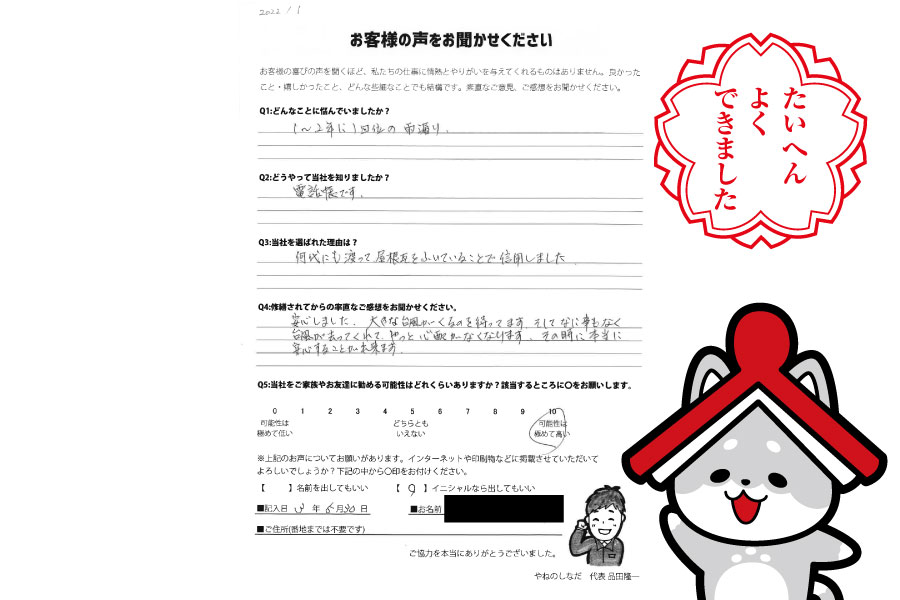 2022/1
お客様の声をお聞かせください
お客様の喜びの声を聞くほど、私たちの仕事に情熱とやりがいを与えてくれるものはありません。良かった
こと・嬉しかったこと、どんな些細なことでも結構です。素直なご意見、ご感想をお聞かせください。
Q1:どんなことに悩んでいましたか？
1〜2年に1回位の雨漏り.
Q2:どうやって当社を知りましたか？
電話帳です.
Q3:当社を選ばれた理由は？
何代にも渡って屋根瓦をふいていることで信用しました
Q4:修繕されてからの率直なご感想をお聞かせください。
安心しました. 大きな台風がくるのを待ってます. そしてなに事もなく
台風が去ってくれて. やっと心配がなくなります. その時に本当に
安心することが出来ます.
Q5:当社をご家族やお友達に勧める可能性はどれくらいありますか？該当するところに〇をお願いします。
0 1 2 3 4 5 6 7 8 9 10
可能性は どちらとも 可能性は
極めて低い いえない 極めて高い
※上記のお声についてお願いがあります。インターネットや印刷物などに掲載させていただいて
よろしいでしょうか？下記の中から〇印をお付けください。
【 】名前を出してもいい 【 】イニシャルなら出してもいい
■記入日 年 月30日 ■お名前
■ご住所(番地までは不要です)
ご協力を本当にありがとうございました。
やねのしなだ 代表 品田隆一
たいへん
よく
できました